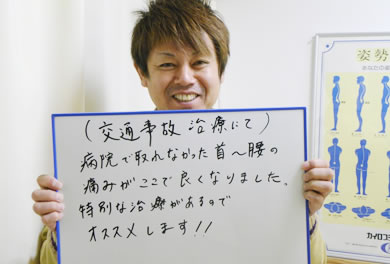 (交通事故 治療にて)
病院で取れなかった首〜腰の
痛みがここで良くなりました。
特別な治療があるので
オススメします!!
姿勢
あなたの姿
カイロプラ